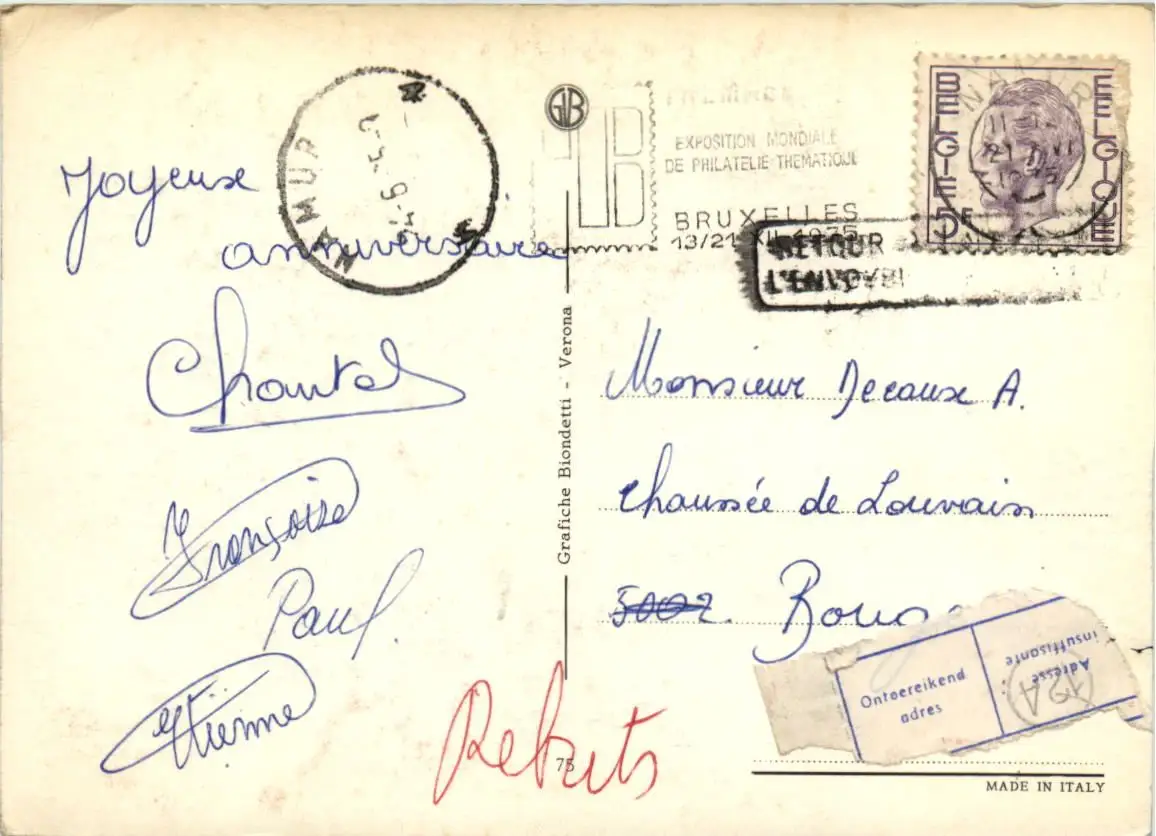 Joyeuse
anniversaire
Chantal
Françoise
Paul.
Etienne
Rebuts
NAMUR
GB
EXPOSITION MONDIALE
DE PHILATELIE THEMATIQUE
BRUXELLES
13/21 XII 1975
BELGIE BELGIQUE
5F
NAMUR
RETOUR
L'ENVOYE
Grafiche Biondetti - Verona
Monsieur Decaux A.
Chaussée de Louvain
5002.
Ontoereikend
adres
Adresse
insuffisante
75
MADE IN ITALY